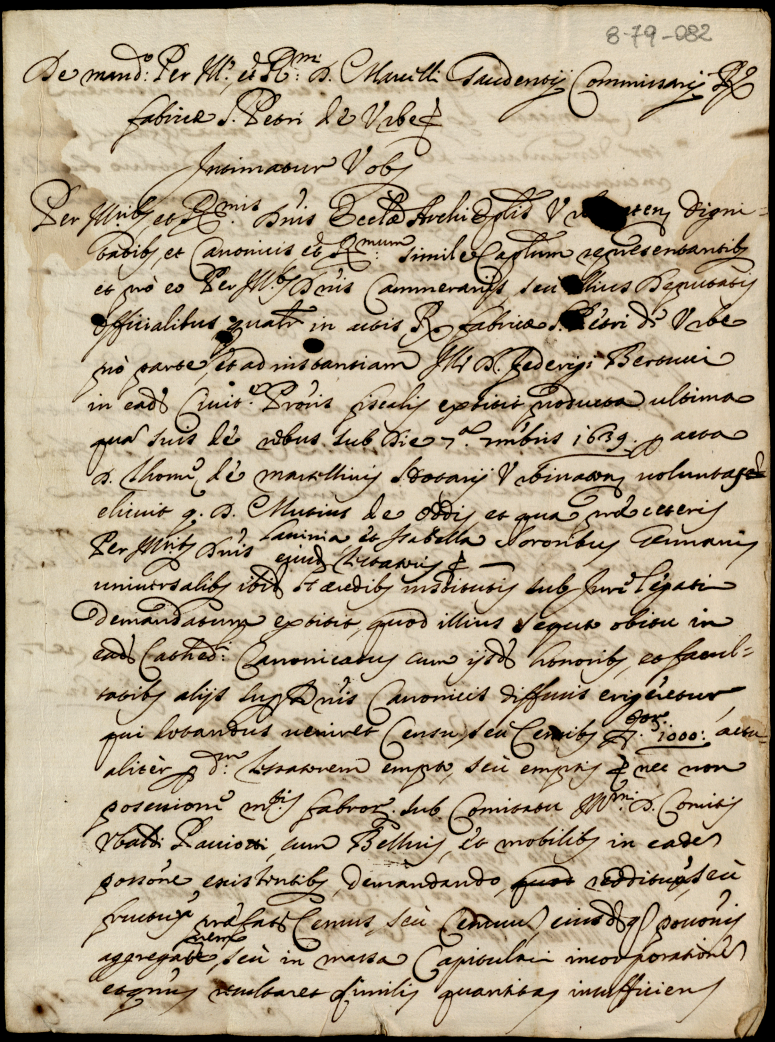 8-79-082
De mand: Per Ill. et R.mi D. Marcelli Gaudentij Commissarij R.
fabricæ S. Petri de Urbe
Intimatur Vobis
Per Illrib. et R.mis D'nis Eccl'æ Archi Ep'lis Digni-
tatib. et Canonicis et R.mum simile Cap'lum representantib.
et pro eo Per Ill. D'nis Camerarijs, seu illius Deputatis
officialibus in actis R. fabricæ S. Petri de Urbe
pro parte, et ad instantiam Ill. D. Federici Bertucci
in ead. Civit. Pro'ris fiscalis extitit producta ultima
qua suis de rebus sub die 7.a 1639. p acta
D. Thom. de Marcellinis Notarij Urbinaten. voluntate
elicuit q. D. Mutius de Oddis et qua ceteris
Per Illrib. D'nis Lavinia et Isabella sororibus Germanis
eiusd. Testatoris
universalib. ibid. Hæredib. institutis sub Jure legati
Demandatum extitit, quod illius sequto obitu in
ead. Cathed. Canonicatus cum ijsd. honorib. et facul-
tatib. alijs D'nis Canonicis diffusis erigeretur
qui dotandus veniret Censu, seu Censib. 1000: actu-
aliter p d. Testatorem empto, seu emptis nec non
possessione fabror. sub Comitatu Ill.mi D. Comitis
Ubaldi Paciotti, cum Bestijs, et mobilib. in eadem
poss'one existentib. Demandando, quod redditus, seu
fructus præfati Census, seu Censuum eiusd. poss'onis
aggregate, seu in massa Capitulari incorporationem
resultaret similis quantitas insufficiens